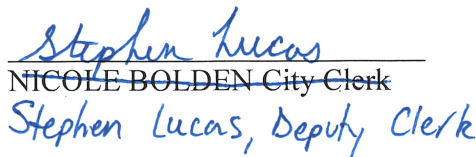 Stephen Lucas
NICOLE BOLDEN City Clerk
Stephen Lucas, Deputy Clerk